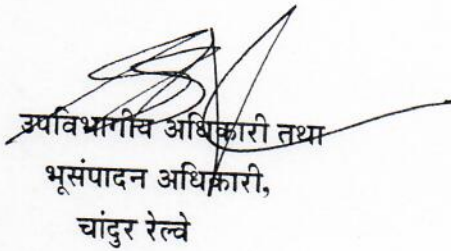 उपविभागीय अधिकारी तथा
भूसंपादन अधिकारी,
चांदुर रेल्वे